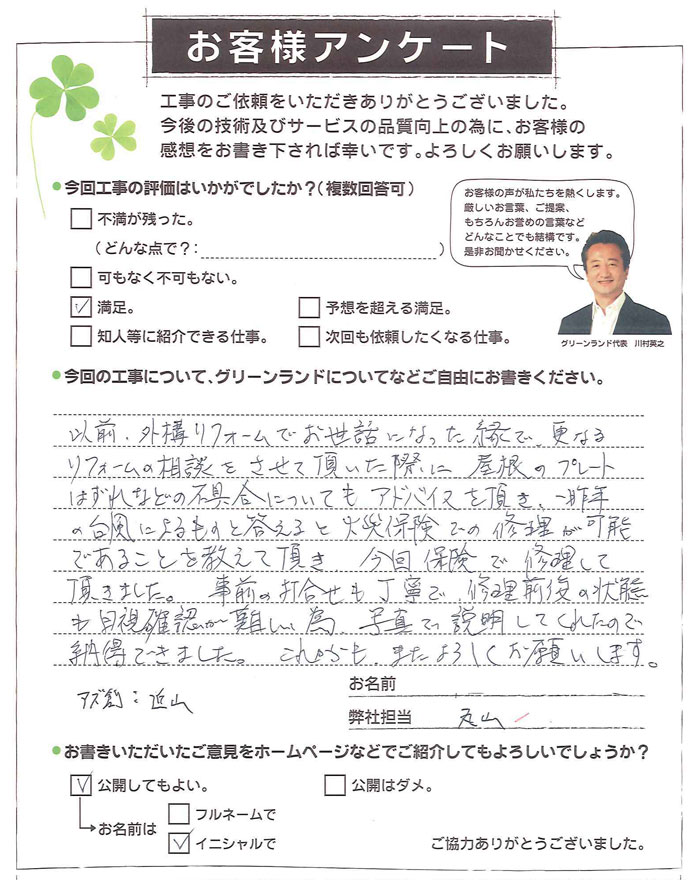 お客様アンケート
工事のご依頼をいただきありがとうございました。
今後の技術及びサービスの品質向上の為に、お客様の
感想をお書き下されば幸いです。よろしくお願いします。
今回工事の評価はいかがでしたか?(複数回答可)
お客様の声が私たちを熱くします。
厳しいお言葉、ご提案、
もちろんお誉めの言葉など
どんなことでも結構です。
是非お聞かせください。
不満が残った。
(どんな点で?: )
可もなく不可もない。
満足。 予想を超える満足。
知人等に紹介できる仕事。 次回も依頼したくなる仕事。
グリーンランド代表 川村英之
今回の工事について、グリーンランドについてなどご自由にお書きください。
以前、外構リフォームでお世話になった縁で、更なる
リフォームの相談をさせて頂いた際に屋根のプレート
はずれなどの不具合についてもアドバイスを頂き、一昨年
の台風によるものと答えると火災保険での修理が可能
であることを教えて頂き 今回保険で修理して
頂きました。 事前の打合せも丁寧で、修理前後の状態
も目視確認が難しい為、写真で説明してくれたので
納得できました。 これからも、またよろしくお願いします。
アズ創:近山
お名前
弊社担当 丸山
お書きいただいたご意見をホームページなどでご紹介してもよろしいでしょうか?
公開してもよい。 公開はダメ。
お名前は フルネームで
イニシャルで
ご協力ありがとうございました。